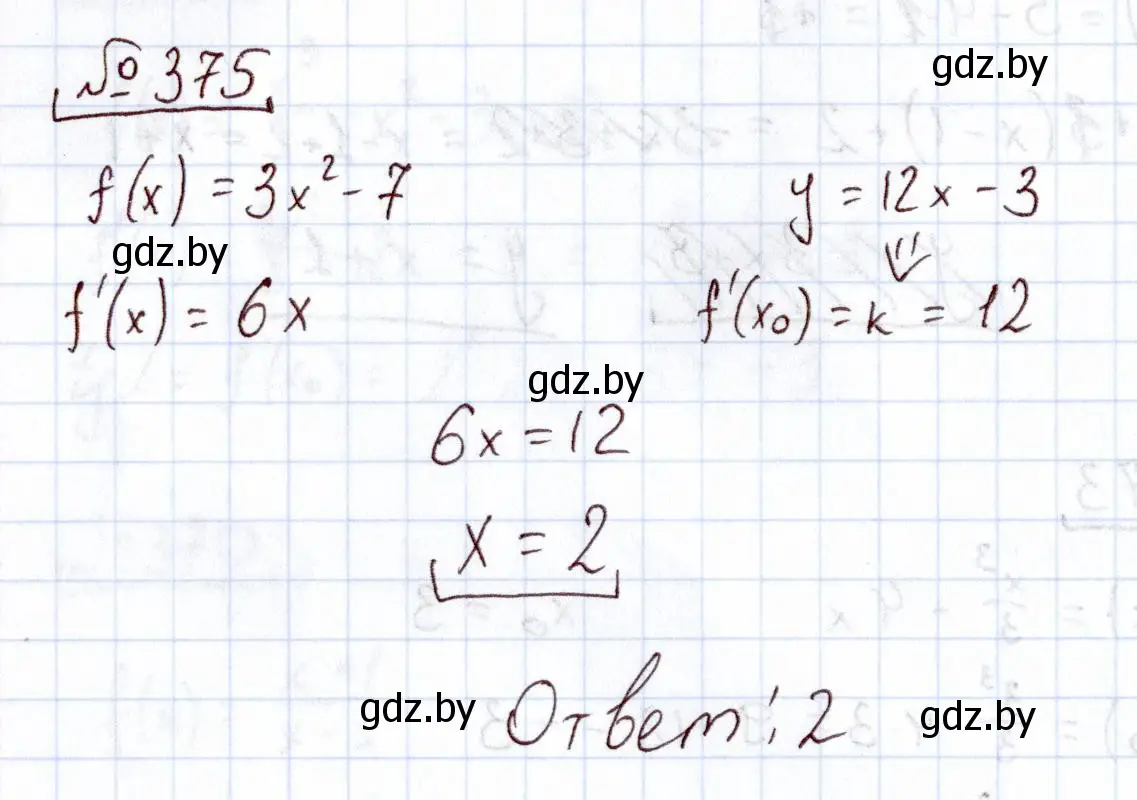 № 375
gdz.by
f(x) = 3x² - 7
y = 12x - 3
gdz.by
f'(x) = 6x
f'(x₀) = k = 12
gdz.by
6x = 12
x = 2
gdz.by
Ответ: 2
gdz.by